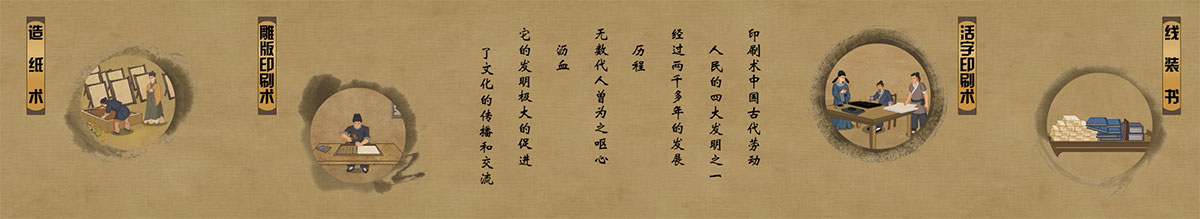 线装书
活字印刷术
印刷术中国古代劳动
人民的四大发明之一
经过两千多年的发展
历程
无数代人曾为之呕心
沥血
它的发明极大的促进
了文化的传播和交流
雕版印刷术
造纸术